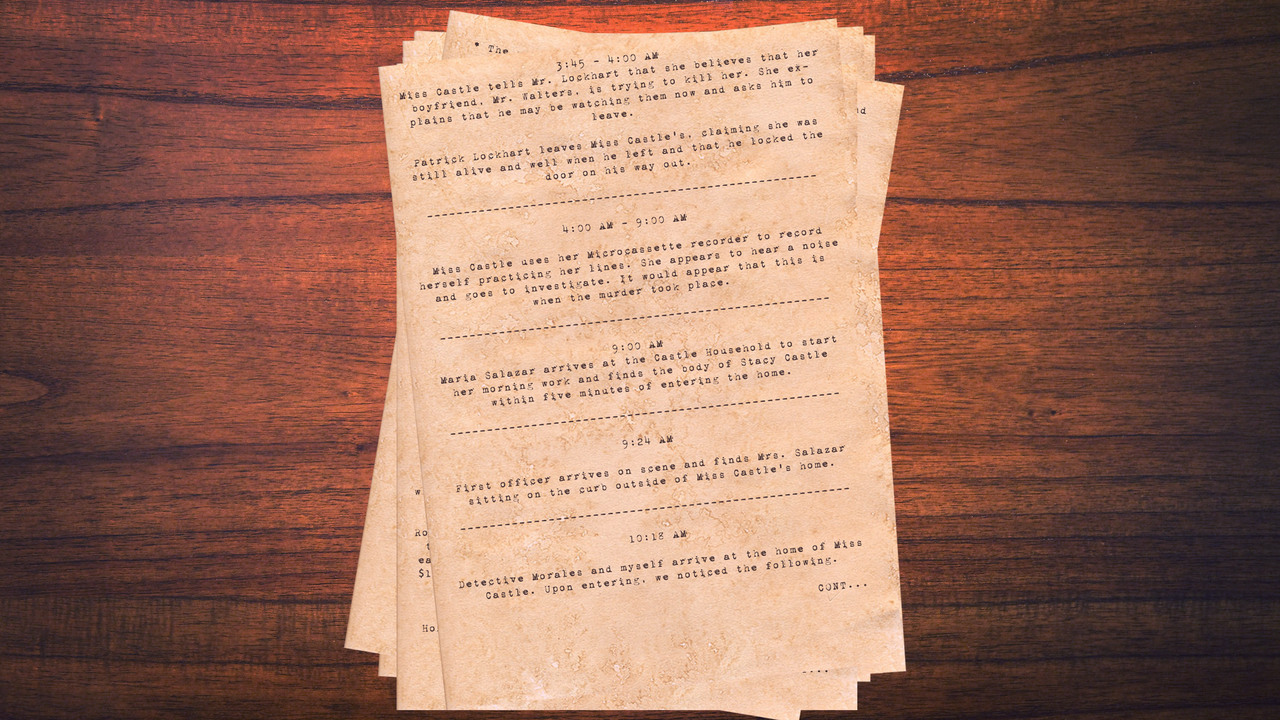 • The
3:45 - 4:00 AM
Miss Castle tells Mr. Lockhart that she believes that her
boyfriend, Mr. Walters, is trying to kill her. She ex-
plains that he may be watching them now and asks him to
leave.
Patrick Lockhart leaves Miss Castle's, claiming she was
still alive and well when he left and that he locked the
door on his way out.
4:00 AM - 9:00 AM
Miss Castle uses her Microcassette recorder to record
herself practicing her lines. She appears to hear a noise
and goes to investigate. It would appear that this is
when the murder took place.
9:00 AM
Maria Salazar arrives at the Castle Household to start
her morning work and finds the body of Stacy Castle
within five minutes of entering the home.
9:24 AM
First officer arrives on scene and finds Mrs. Salazar
sitting on the curb outside of Miss Castle's home.
10:18 AM
Detective Morales and myself arrive at the home of Miss
Castle. Upon entering, we noticed the following.
CONT...
w
Ro
ea
$1
Ho